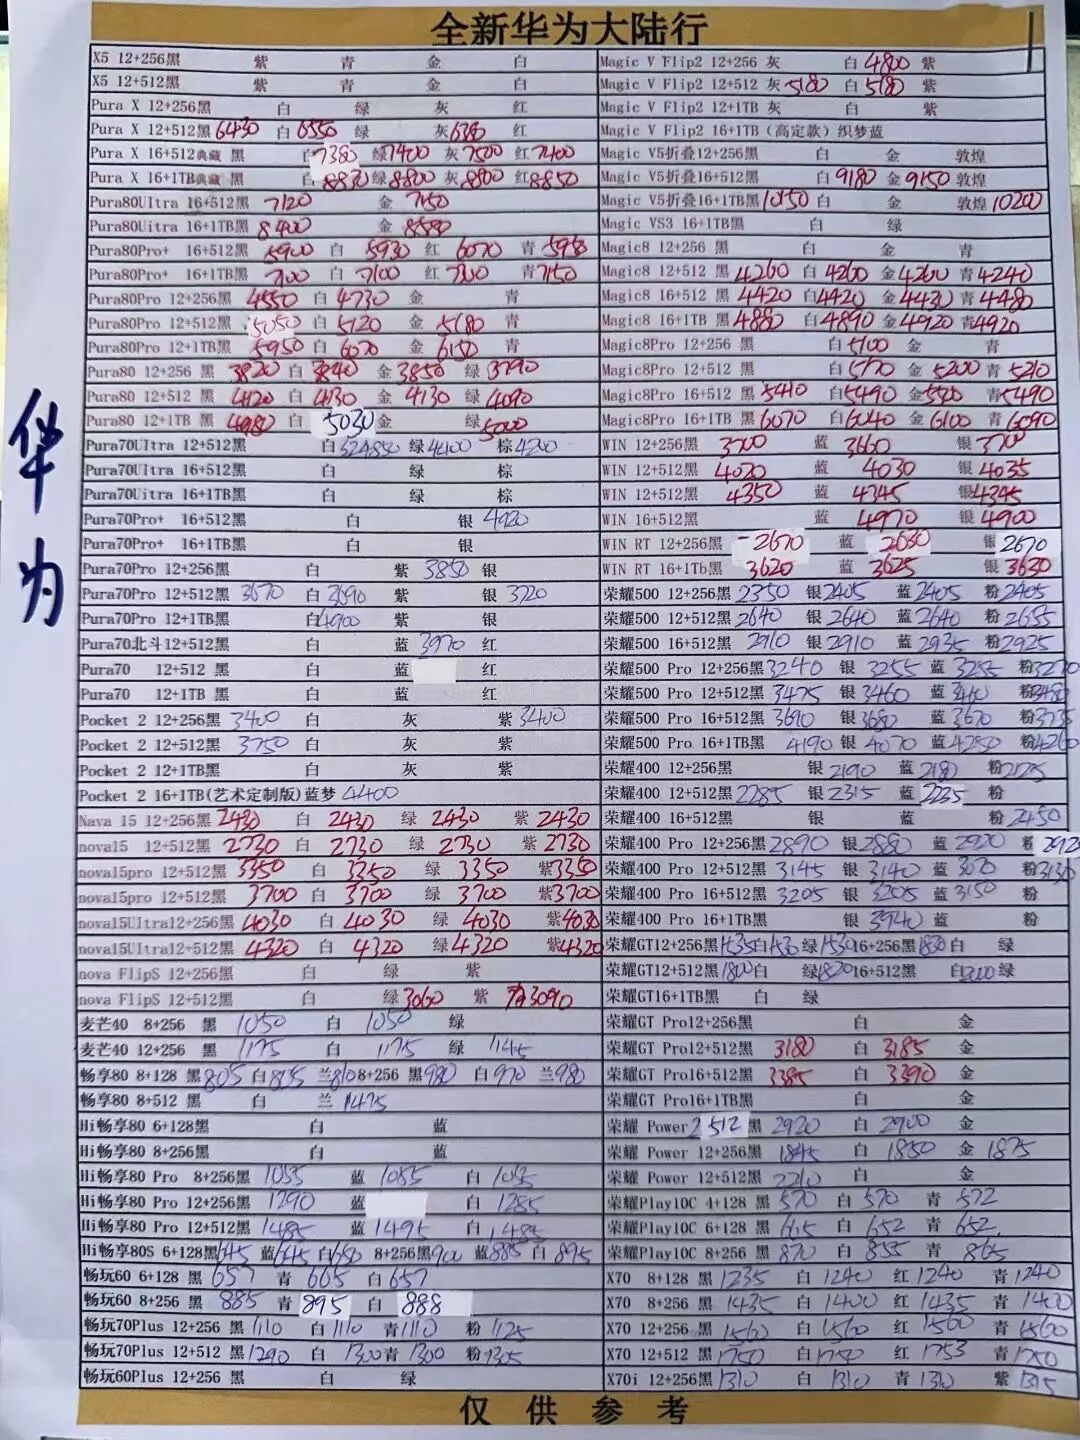 全新华为大陆行
华为
X5 12+256黑 紫 青 金 白
X5 12+512黑 紫 青 金 白
Pura X 12+256黑 白 绿 灰 红
Pura X 12+512黑 6430 白 6550 绿 灰 6380 红
Pura X 16+512典藏 黑 白 7380 绿 7400 灰 7500 红 7400
Pura X 16+1TB典藏 黑 白 8830 绿 8800 灰 8800 红 8850
Pura80UItra 16+512黑 7120 金 7150
Pura80Uitra 16+1TB黑 8400 金 8580
Pura80Pro+ 16+512黑 5900 白 5930 红 6070 青 5950
Pura80Pro+ 16+1TB黑 白 7100 红 青 7150
Pura80Pro 12+256黑 4550 白 4730 金 青
Pura80Pro 12+512黑 5050 白 5120 金 5180 青
Pura80Pro 12+1TB黑 5950 白 6070 金 6150 青
Pura80 12+256 黑 3820 白 3840 金 3850 绿 3790
Pura80 12+512 黑 4120 白 4130 金 4130 绿 4090
Pura80 12+1TB 黑 4980 白 5030 金 绿 5000
Pura70Ultra 12+512黑 白 绿 4400 棕 4200
Pura70UItra 16+512黑 白 绿 棕
Pura70Uitra 16+1TB黑 白 绿 棕
Pura70Pro+ 16+512黑 白 银 4920
Pura70Pro+ 16+1TB黑 白 银
Pura70Pro 12+256黑 白 紫 3850 银
Pura70Pro 12+512黑 3670 白 3690 紫 银 3720
Pura70Pro 12+1TB黑 白 4900 紫 银
Pura70北斗12+512黑 白 蓝 3970 红
Pura70 12+512 黑 白 蓝 红
Pura70 12+1TB 黑 白 蓝 红
Pocket 2 12+256黑 3400 白 灰 紫 3400
Pocket 2 12+512黑 3750 白 灰 紫
Pocket 2 12+1TB黑 白 灰 紫
Pocket 2 16+1TB(艺术定制版)蓝梦 4400
Nava 15 12+256黑 2430 白 2430 绿 2430 紫 2430
nova15 12+512黑 2730 白 2730 绿 2730 紫 2730
nova15pro 12+512黑 3350 白 3350 绿 3350 紫 3350
nova15pro 12+512黑 3700 白 3700 绿 3700 紫 3700
nova15UItra12+256黑 4030 白 4030 绿 4030 紫 4030
nova15UItra12+512黑 4320 白 4320 绿 4320 紫 4320
nova FlipS 12+256黑 白 绿 紫
nova FlipS 12+512黑 白 绿 3060 紫 3090
麦芒40 8+256 黑 1050 白 1050 绿
麦芒40 12+256 黑 1175 白 1175 绿 1145
畅享80 8+128 黑 805 白 805 兰 810 8+256 黑 980 白 970 兰 980
畅享80 8+512 白 兰 1475
Hi畅享80 6+128黑 白 蓝
Hi畅享80 8+256黑 白 蓝
Hi畅享80 Pro 8+256黑 1055 蓝 1055 白 1055
Hi畅享80 Pro 12+256黑 1290 蓝 白 1285
Hi畅享80 Pro 12+512黑 1485 蓝 1495 白 1485
Hi畅享80S 6+128黑 645 蓝 645 白 650 8+256黑 900 蓝 885 白 895
畅玩60 6+128 黑 657 青 665 白 657
畅玩60 8+256 黑 885 青 895 白 888
畅玩70Plus 12+256 黑 1110 白 1110 青 1110 粉 1125
畅玩70Plus 12+512 黑 1290 白 1300 青 1300 粉 1305
畅玩60Plus 12+256 黑 白 绿
Magic V Flip2 12+256 灰 白 4800 紫
Magic V Flip2 12+512 灰 5180 白 5180 紫
Magic V Flip2 12+1TB 灰 白 紫
Magic V Flip2 16+1TB（高定款）织梦蓝
Magic V5折叠12+256黑 白 金 敦煌
Magic V5折叠16+512黑 白 9180 金 9150 敦煌
Magic V5折叠16+1TB黑 10150 白 金 敦煌 10200
Magic VS3 16+1TB黑 白 绿
Magic8 12+256 黑 白 金 青
Magic8 12+512 黑 4260 白 4260 金 4260 青 4240
Magic8 16+512 黑 4420 白 4420 金 4430 青 4480
Magic8 16+1TB 黑 4880 白 4890 金 4920 青 4920
Magic8Pro 12+256 黑 白 5100 金 青
Magic8Pro 12+512 黑 白 5170 金 5200 青 5210
Magic8Pro 16+512 黑 5410 白 5490 金 5520 青 5490
Magic8Pro 16+1TB 黑 6070 白 6040 金 6100 青 6090
WIN 12+256黑 3700 蓝 3660 银 3700
WIN 12+512黑 4020 蓝 4030 银 4035
WIN 12+512黑 4350 蓝 4345 银 4345
WIN 16+512黑 蓝 4970 银 4900
WIN RT 12+256黑 2670 蓝 2630 银 2670
WIN RT 16+1Tb黑 3620 蓝 3625 银 3630
荣耀500 12+256黑 2350 银 2405 蓝 2405 粉 2405
荣耀500 12+512黑 2640 银 2640 蓝 2640 粉 2655
荣耀500 16+512黑 2910 银 2910 蓝 2935 粉 2925
荣耀500 Pro 12+256黑 3240 银 3255 蓝 3255 粉 3270
荣耀500 Pro 12+512黑 3475 银 3460 蓝 粉 3480
荣耀500 Pro 16+512黑 3690 银 3680 蓝 3670 粉 3735
荣耀500 Pro 16+1TB黑 4190 银 4070 蓝 4250 粉 4260
荣耀400 12+256黑 银 2190 蓝 2180 粉 2175
荣耀400 12+512黑 2285 银 2315 蓝 2235 粉
荣耀400 16+512黑 银 蓝 粉 2450
荣耀400 Pro 12+256黑 2890 银 2880 蓝 2920
荣耀400 Pro 12+512黑 3145 银 3140 蓝 3070 粉 3130
荣耀400 Pro 16+512黑 3205 银 3205 蓝 3150 粉
荣耀400 Pro 16+1TB黑 银 3940 蓝 粉
荣耀GT12+256黑 1535 白 1530 绿 1530 16+256黑 1830 白 绿
荣耀GT12+512黑 1800 白 绿 1820 16+512黑 白 绿
荣耀GT16+1TB黑 白 绿
荣耀GT Pro12+256黑 白 金
荣耀GT Pro12+512黑 3180 白 3185 金
荣耀GT Pro16+512黑 3385 白 3390 金
荣耀GT Pro16+1TB黑 白 金
荣耀 Power2 512 黑 2920 白 2900 金
荣耀 Power 12+256黑 1845 白 1850 金 1875
荣耀 Power 12+512黑 2210 白 金
荣耀Play10C 4+128 黑 570 白 570 青 572
荣耀Play10C 6+128 黑 665 白 652 青 652
荣耀Play10C 8+256 黑 870 白 855 青 865
X70 8+128 黑 1235 白 1240 红 1240 青 1240
X70 8+256 黑 1435 白 1400 红 1435 青 1400
X70 12+256 黑 1560 白 1560 红 1560 青 1560
X70 12+512 黑 1750 白 1750 红 1753 青 1750
X70i 12+256黑 1310 白 1310 青 1310 紫 1315
仅供参考